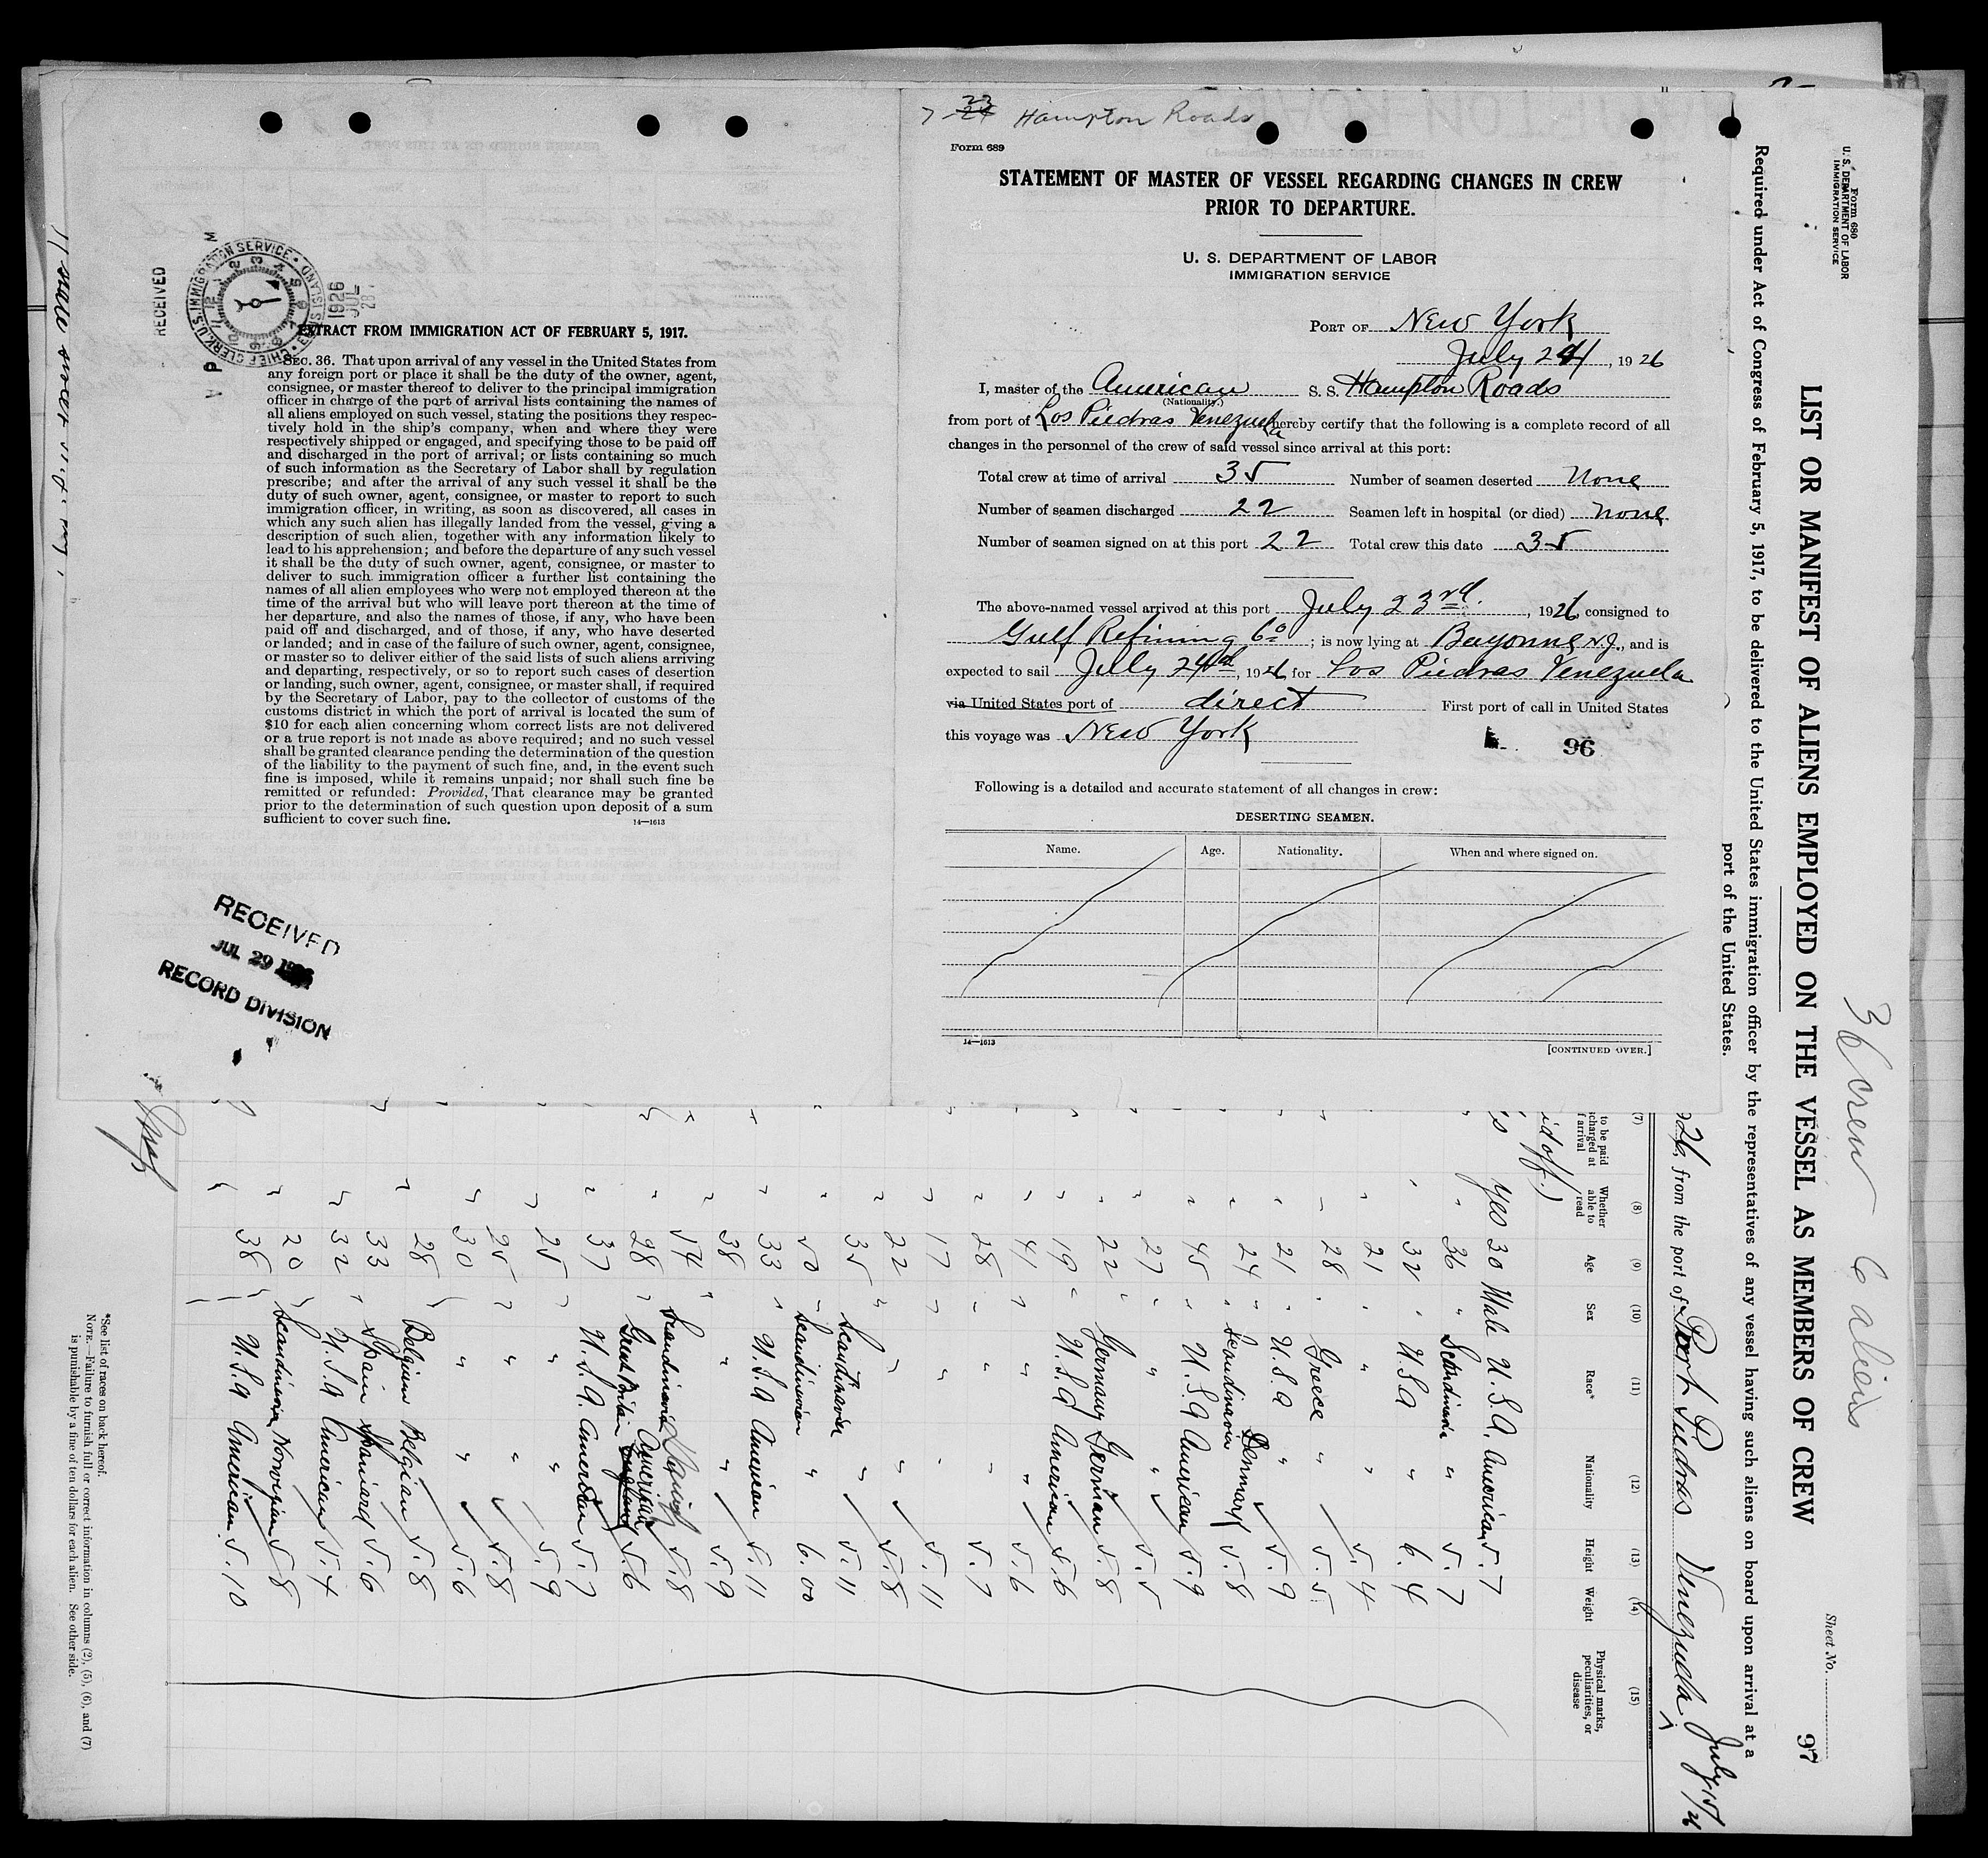 7-23 Hampton Roads
Form 689
STATEMENT OF MASTER OF VESSEL REGARDING CHANGES IN CREW
PRIOR TO DEPARTURE.
U. S. DEPARTMENT OF LABOR
IMMIGRATION SERVICE
PORT OF New York
July 24, 1926
I, master of the American S. S. Hampton Roads
(Nationality.)
from port of Los Piedras Venezuela hereby certify that the following is a complete record of all
changes in the personnel of the crew of said vessel since arrival at this port:
Total crew at time of arrival 35 Number of seamen deserted None
Number of seamen discharged 22 Seamen left in hospital (or died) None
Number of seamen signed on at this port 22 Total crew this date 35
The above-named vessel arrived at this port July 23rd, 1926 consigned to
Gulf Refining Co; is now lying at Bayonne N.J., and is
expected to sail July 24th, 1926 for Los Piedras Venezuela
via United States port of direct First port of call in United States
this voyage was New York
96
Following is a detailed and accurate statement of all changes in crew:
DESERTING SEAMEN.
Name. Age. Nationality. When and where signed on.
14—1613
[CONTINUED OVER.]
RECEIVED
U.S. IMMIGRATION SERVICE
CHIEF CLERK
1926
JUL
28
EXTRACT FROM IMMIGRATION ACT OF FEBRUARY 5, 1917.
SEC. 36. That upon arrival of any vessel in the United States from
any foreign port or place it shall be the duty of the owner, agent,
consignee, or master thereof to deliver to the principal immigration
officer in charge of the port of arrival lists containing the names of
all aliens employed on such vessel, stating the positions they respec-
tively hold in the ship's company, when and where they were
respectively shipped or engaged, and specifying those to be paid off
and discharged in the port of arrival; or lists containing so much
of such information as the Secretary of Labor shall by regulation
prescribe; and after the arrival of any such vessel it shall be the
duty of such owner, agent, consignee, or master to report to such
immigration officer, in writing, as soon as discovered, all cases in
which any such alien has illegally landed from the vessel, giving a
description of such alien, together with any information likely to
lead to his apprehension; and before the departure of any such vessel
it shall be the duty of such owner, agent, consignee, or master to
deliver to such immigration officer a further list containing the
names of all alien employees who were not employed thereon at the
time of the arrival but who will leave port thereon at the time of
her departure, and also the names of those, if any, who have been
paid off and discharged, and of those, if any, who have deserted
or landed; and in case of the failure of such owner, agent, consignee,
or master so to deliver either of the said lists of such aliens arriving
and departing, respectively, or so to report such cases of desertion
or landing, such owner, agent, consignee, or master shall, if required
by the Secretary of Labor, pay to the collector of customs of the
customs district in which the port of arrival is located the sum of
$10 for each alien concerning whom correct lists are not delivered
or a true report is not made as above required; and no such vessel
shall be granted clearance pending the determination of the question
of the liability to the payment of such fine, and, in the event such
fine is imposed, while it remains unpaid; nor shall such fine be
remitted or refunded: Provided, That clearance may be granted
prior to the determination of such question upon deposit of a sum
sufficient to cover such fine.
14—1613
RECEIVED
JUL 29 1926
RECORD DIVISION
36 crew 6 aliens
Form 680
U. S. DEPARTMENT OF LABOR
IMMIGRATION SERVICE
Sheet No.
97
LIST OR MANIFEST OF ALIENS EMPLOYED ON THE VESSEL AS MEMBERS OF CREW
Required under Act of Congress of February 5, 1917, to be delivered to the United States immigration officer by the representatives of any vessel having such aliens on board upon arrival at a
port of the United States.
26, from the port of Port Piedras Venezuela July 15/26
(7) (8) (9) (10) (11) (12) (13) (14) (15)
to be paid
charged at
arrival
Whether able to read
Age
Sex
Race*
Nationality
Height
Weight
Physical marks, peculiarities, or disease
yes 30 Male U.S.A. American 5.7
" 36 " Scandinavia " 5.7
" 32 " U.S.A " 6.4
" 21 " " 5.4
" 28 " Greece " 5.5
" 21 " U.S.A " 5.9
" 24 " Scandinavia Denmark 5.8
" 45 " U.S.A American 5.9
" 27 " " " 5.5
" 22 " Germany German 5.8
" 19 " U.S.A American 5.6
" 41 " " " 5.6
" 28 " " " 5.7
" 17 " " " 5.11
" 22 " " " 5.8
" 35 Scandinavia " 5.11
" 50 " Scandinavian " 6.00
" 33 " U.S.A American 5.11
" 38 " " " 5.9
" 54 " Scandinavia Danish 5.8
" 28 " Great Britain American 5.6
" 37 U.S.A. American 5.7
" 25 " " " 5.9
" 25 " " " 5.8
" 30 " " 5.6
" 28 Belgium Belgian 5.8
33 " Spain Spaniard 5.6
" 32 U.S.A American 5.4
" 20 Scandinavia Norwegian 5.8
" 38 U.S.A American 5.10
*See list of races on back hereof.
NOTE.—Failure to furnish full or correct information in columns (2), (5), (6), and (7)
is punishable by a fine of ten dollars for each alien. See other side.